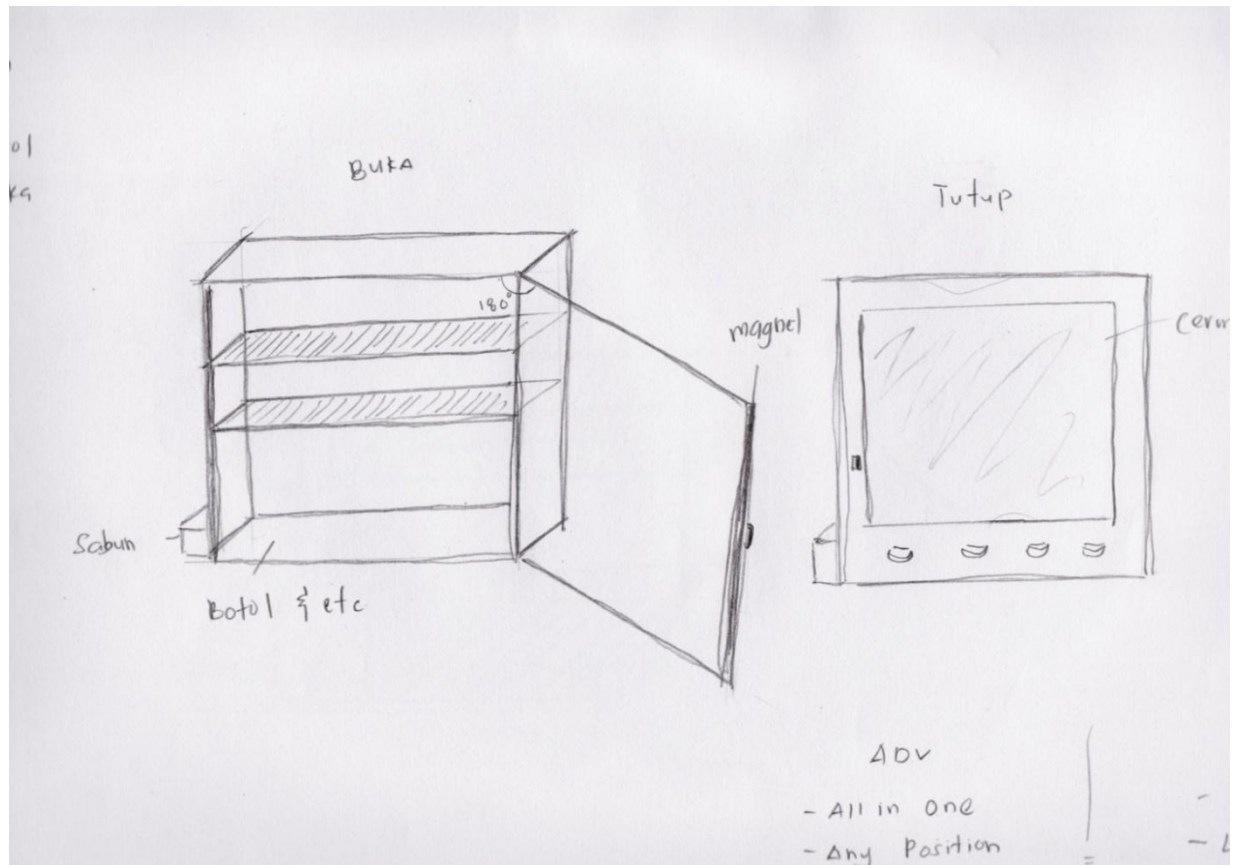 BUKA
Tutup
180°
magnet
Sabun
Botol & etc
ADV
- All in one
- Any Position